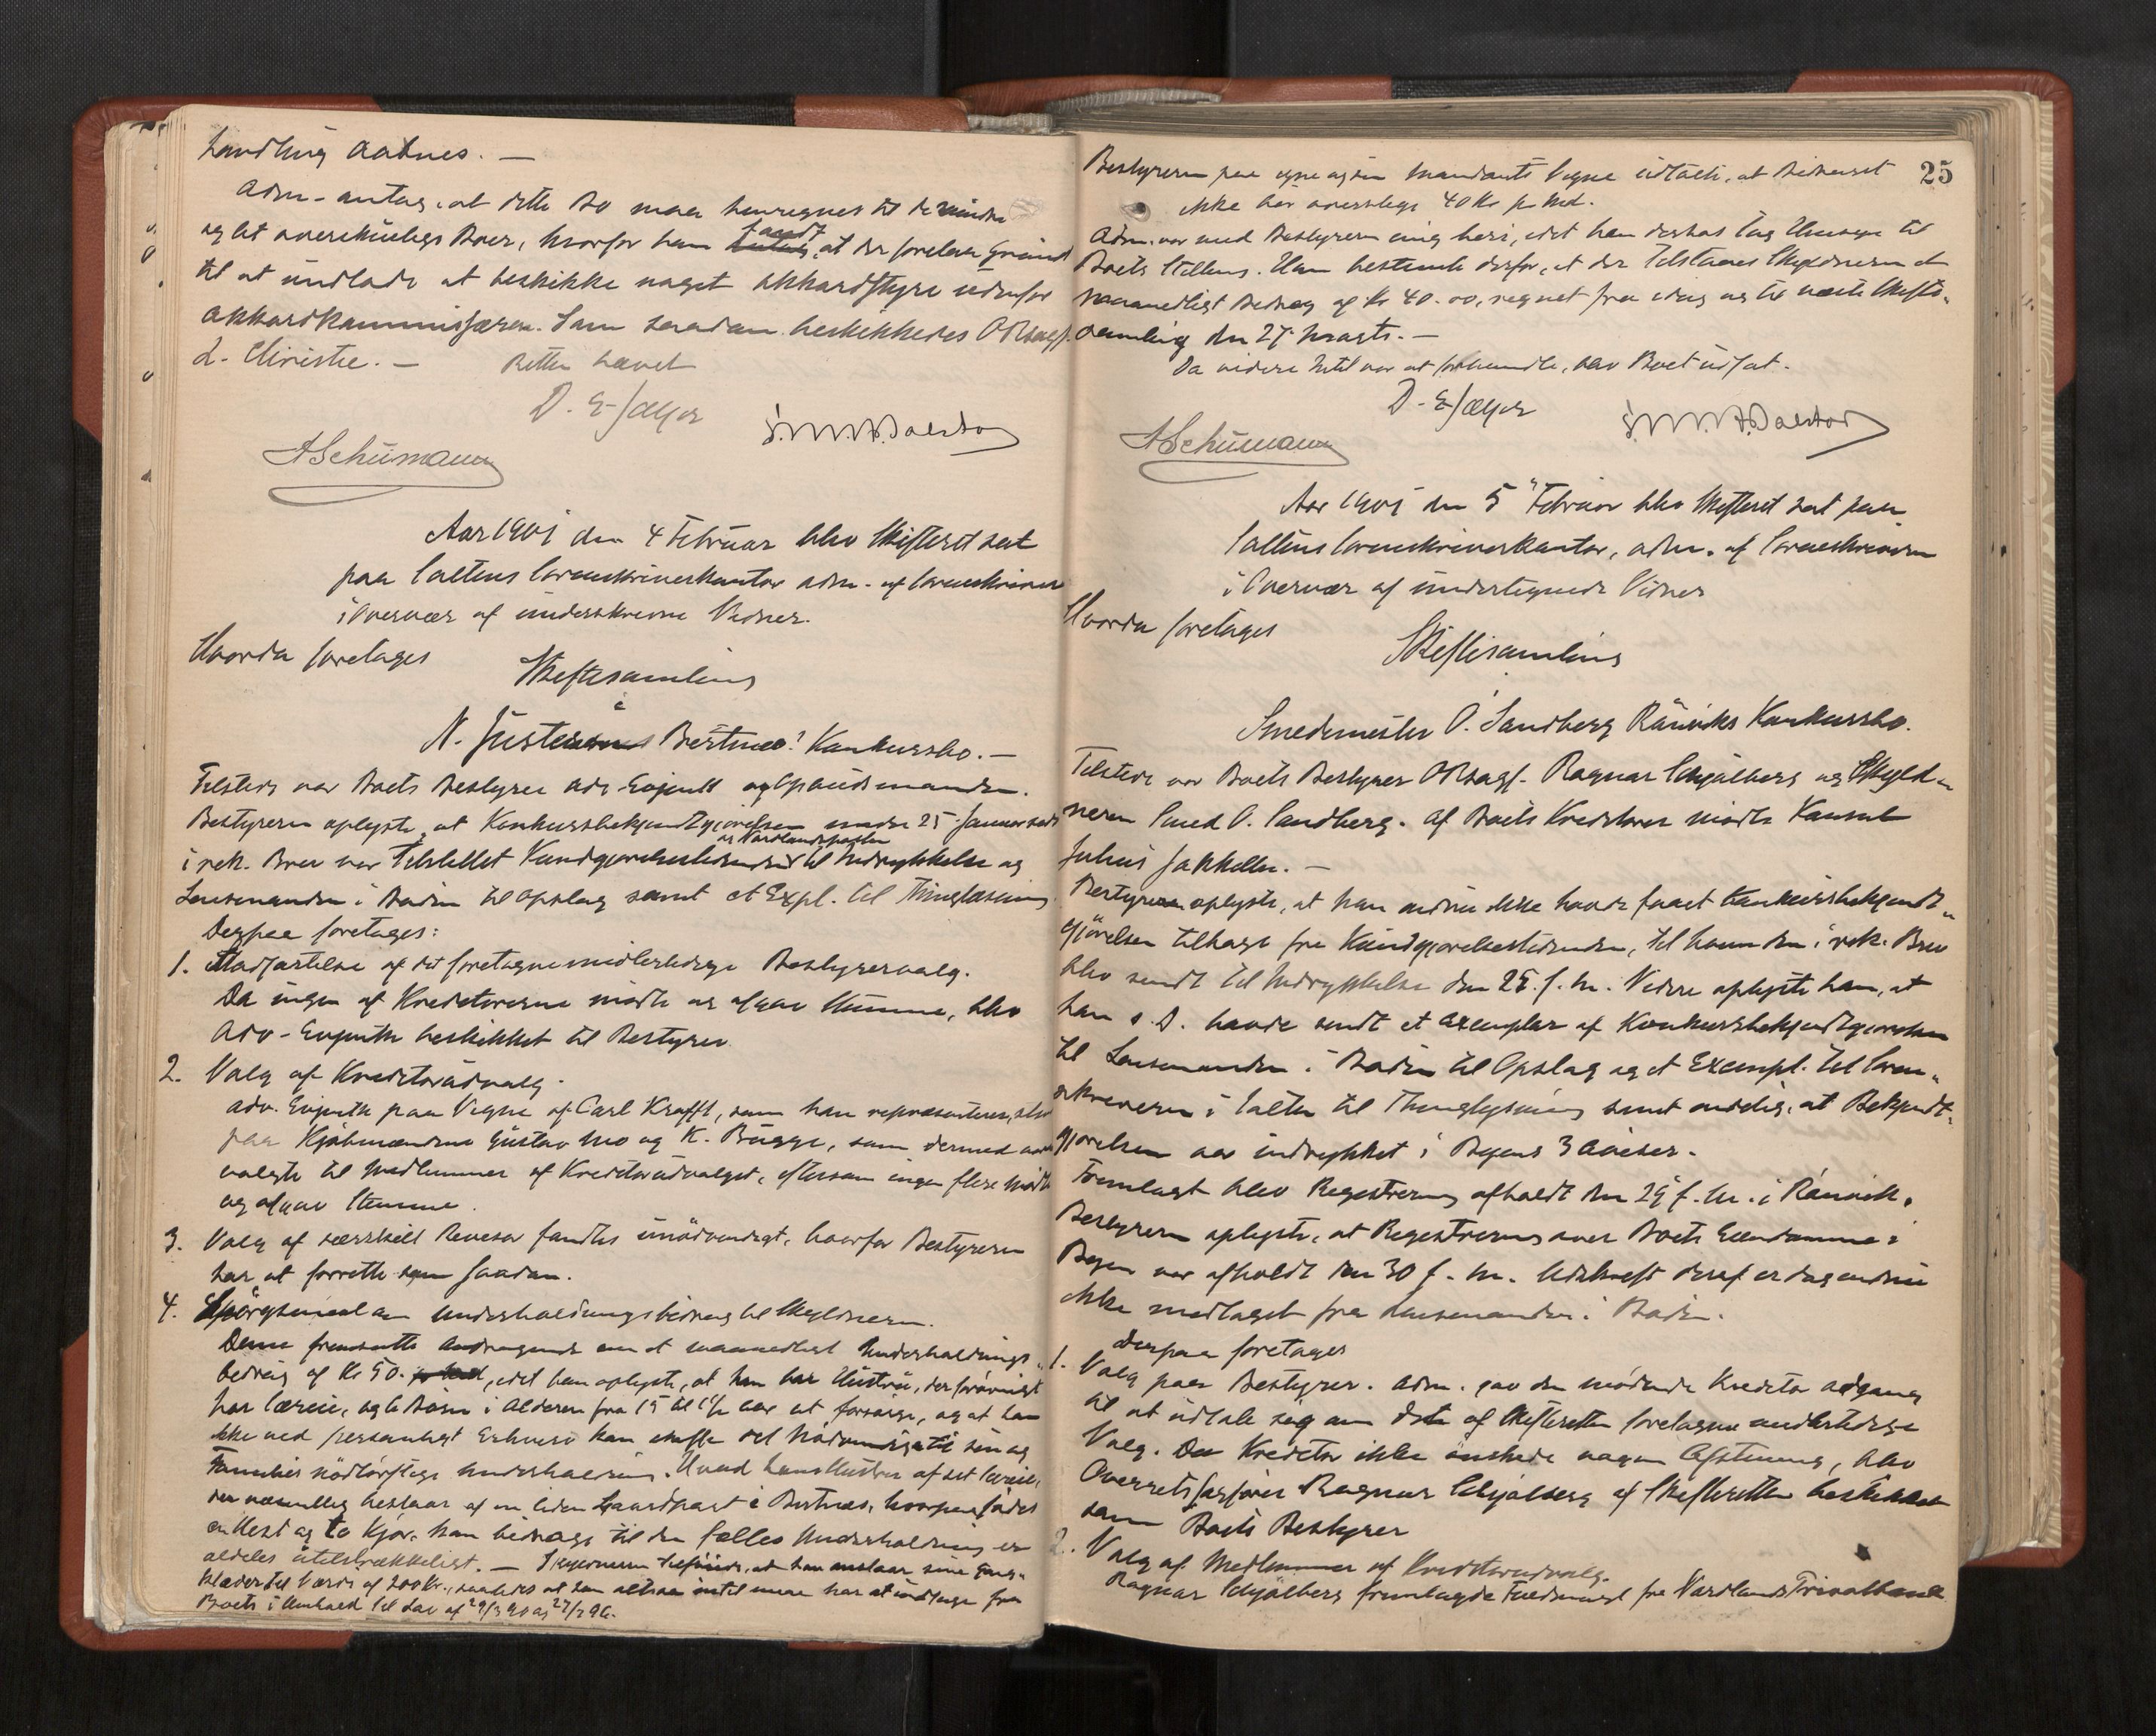 handling aabnes. —
Adm. antog, at dette Bo maa henregnes til de mindre
og let overskuelige Boer, hvorfor han fandt, at der forelaa Grund
til at undlade at beskikke noget Akkordstyre udenfor
Akkordkommissæren. Som saadan beskikkedes ORsagf.
L. Christie. — Retten hævet
D. E. Jæger
A Schümann
Aar 1901 den 4 Februar blev Skifteret sat
paa Saltens Sorenskriverkontor adm. af Sorenskriveren
i Overvær af underskrevne Vidner.
Hvorda foretages
Skiftesamling
i
N. Justesens Bertnes' Konkursbo. —
Tilstede var Boets Bestyrer adv. Evjenth og Opbudsmanden.
Bestyreren oplyste, at Konkursbekjendtgjørelsen under 25 Januar
og Nordlandsposten
i rek. Brev var tilstillet Kundgjørelsestidenden til Indrykkelse og
Lensmanden i Bodin til Opslag samt et Expl. til Thinglæsning
Derpaa foretages:
1. Stadfæstelse af det foretagne midlertidige Bestyrervalg.
Da ingen af Kreditorerne mødte og afgav Stemme, blev
Adv. Evjenth beskikket til Bestyrer.
2. Valg af Kreditorudvalg.
adv. Evjenth paa Vegne af Carl Krafft, som han repræsenterer,
paa Kjøbmændene Gustav Mo og K. Bugge, som dermed
valgte til Medlemmer af Kreditorudvalget, eftersom ingen flere mødte
og afgav Stemme.
3. Valg af særskilt Revisor fandtes unødvendigt, hvorfor Bestyreren
har at forrette som saadan.
4. Spørgsmaal om Underholdningsbidrag til Skyldneren.
Denne fremsatte Andragende om et maanedligt Underholdnings-
bidrag af Kr 50. , idet han oplyste, at han har Hustru, der forøvrigt
har Særeie, og 6 Børn i Alderen fra 15 til 1½ aar at forsørge, og at han
ikke ved personligt Erhverv kan skaffe det Nødvendige til sin og
Families nødtørftige Underholdning. Hvad hans Hustru af sit Særeie,
der væsentlig bestaar af en liden Gaardpart i Bertnes, hvorpaa fødes
en Hest og to Kjør, kan bidrage til den fælles Underholdning er
aldeles utilstrækkeligt. — Skyldneren tilføiede, at han anslaar sine Gang-
klæder til Værdi af 200 Kr., saaledes at han altsaa intet mere har at undtage fra
Boets i Henhold til Lov af 29/3 90 og 27/7 96.
25
Bestyreren paa egne og sin Mandants Vegne udtalte, at Bidraget
ikke bør overstige 40 Kr pr Md.
Adm. var med Bestyreren enig heri, idet han derhos tog Hensyn til
Boets Stilling. Han bestemte derfor, at der tilstaaes Skyldneren et
maanedligt Bidrag af Kr 40.00, regnet fra idag og til næste Skifte-
samling den 27 Marts. —
Da videre intet var at forhandle, blev Boet udsat.
D. E. Jæger
A Schümann
Aar 1901 den 5 Februar blev Skifteret sat paa
Saltens Sorenskriverkontor, adm. af Sorenskriveren
i Overvær af undertegnede Vidner
Hvorda foretages
Skiftesamling
i
Smedmester O. Sandberg Rønviks Konkursbo.
Tilstede var Boets Bestyrer ORsagf. Ragnar Schjølberg og Skyld-
neren Smed O. Sandberg. Af Boets Kreditorer mødte Konsul
Julius Jakhelln. —
Bestyreren oplyste, at han endnu ikke havde faaet Konkursbekjendt-
gjørelsen tilbage fra Kundgjørelsestidenden, til hvem den i rek. Brev
blev sendt til Indrykkelse den 25. f. M. Videre oplyste han, at
han s. D. havde sendt et Exemplar af Konkursbekjendtgjørelsen
til Lensmanden i Bodin til Opslag og et Exempl. til Soren-
skriveren i Salten til Thinglysning samt endelig, at Bekjendt-
gjørelsen var indrykket i Byens 3 Aviser.
Fremlagt blev Registrering afholdt den 29 f. M. i Rønvik.
Bestyreren oplyste, at Registrering over Boets Eiendomme i
Byen var afholdt den 30 f. M. Udskrift deraf er dog endnu
ikke modtaget fra Lensmanden i Bodin.
Derpaa foretages
1. Valg paa Bestyrer. Adm. gav den mødende Kreditor Adgang
til at udtale sig om dette af Skifteretten foretagne midlertidige
Valg. Da Kreditor ikke ønskede nogen Afstemning, blev
Overretssagfører Ragnar Schjølberg af Skifteretten beskikket
som Boets Bestyrer
2. Valg af Medlemmer af Kreditorudvalg.
Ragnar Schjølberg fremlagde Fuldmagt fra Nordlands Privatbank